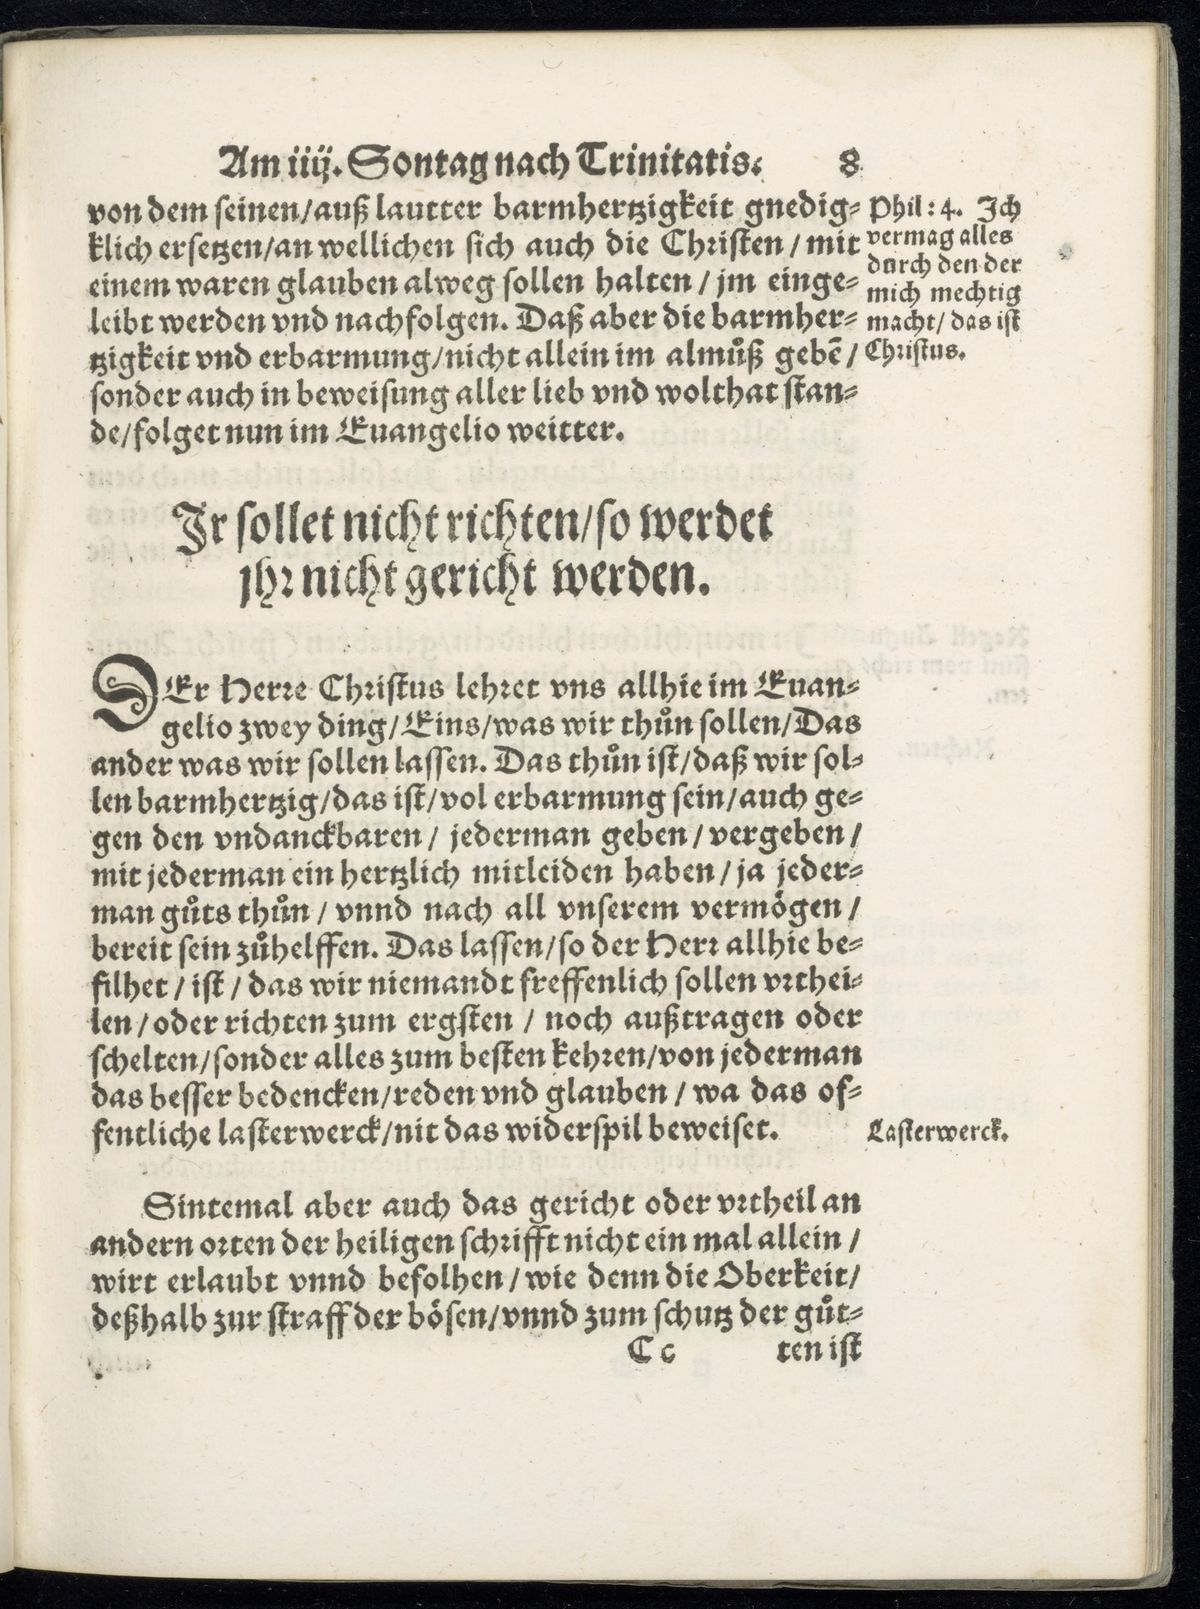 Am iiij. Sontag nach Trinitatis. 8
von dem seinen/auß lautter barmhertzigkeit gnedig-
klich ersetzen/an wellichen sich auch die Christen/mit
einem waren glauben alweg sollen halten/jm einge-
leibt werden vnd nachfolgen. Daß aber die barmher-
tzigkeit vnd erbarmung/nicht allein im almuͦß gebē/
sonder auch in beweisung aller lieb vnd wolthat stan-
de/folget nun im Euangelio weitter.
Phil: 4. Ich
vermag alles
durch den der
mich mechtig
macht/das ist
Christus.
Ir sollet nicht richten/so werdet
jhr nicht gericht werden.
DEr Herre Christus lehret vns allhie im Euan-
gelio zwey ding/Eins/was wir thuͦn sollen/Das
ander was wir sollen lassen. Das thuͦn ist/daß wir sol-
len barmhertzig/das ist/vol erbarmung sein/auch ge-
gen den vndanckbaren/ jederman geben/vergeben/
mit jederman ein hertzlich mitleiden haben/ja jeder-
man guͦts thuͦn/ vnnd nach all vnserem vermögen/
bereit sein zuͦhelffen. Das lassen/so der Herr allhie be-
filhet/ist/das wir niemandt freffenlich sollen vrthei-
len/oder richten zum ergsten/ noch außtragen oder
schelten/sonder alles zum besten kehren/von jederman
das besser bedencken/reden vnd glauben/ wa das of-
fentliche lasterwerck/nit das widerspil beweiset.
Lasterwerck.
Sintemal aber auch das gericht oder vrtheil an
andern orten der heiligen schrifft nicht ein mal allein/
wirt erlaubt vnnd befolhen/wie denn die Oberkeit/
deßhalb zur straff der bösen/vnnd zum schutz der guͦt-
C c ten ist